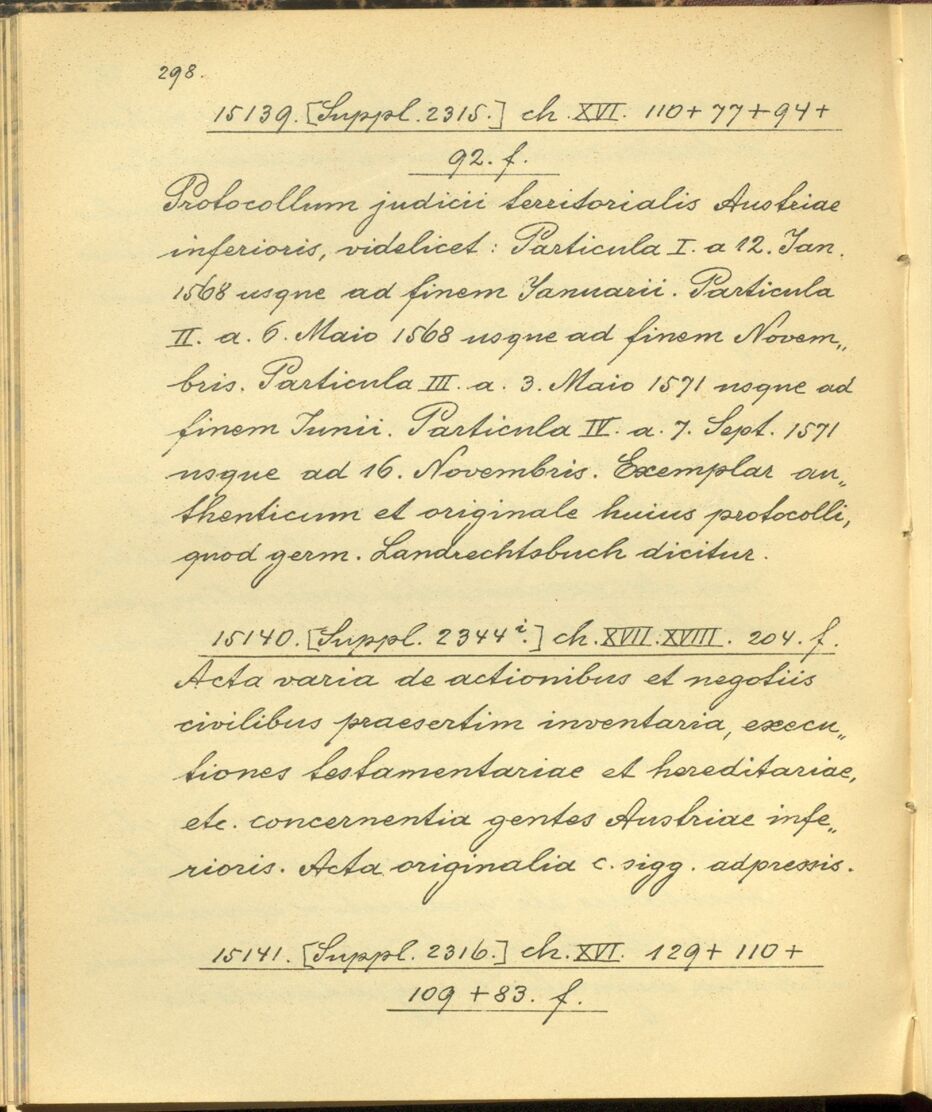 298.
15139. [Suppl. 2315.] ch. XVI. 110 + 77 + 94 +
92. f.
Protocollum judicii territorialis Austriae
inferioris, videlicet : Particula I. a 12. Jan.
1568 usque ad finem Januarii. Particula
II. a. 6. Maio 1568 usque ad finem Novem„
bris. Particula III. a. 3. Maio 1571 usque ad
finem Junii. Particula IV. a. 7. Sept. 1571
usque ad 16. Novembris. Exemplar au„
thenticum et originale huius protocolli,
quod germ. Landrechtsbuch dicitur.
15140. [Suppl. 2344 i.] ch. XVII. XVIII. 204. f.
Acta varia de actionibus et negotiis
civilibus praesertim inventaria, execu„
tiones testamentariae et hereditariae,
etc. concernentia gentes Austriae infe„
rioris. Acta originalia c. sigg. adpressis.
15141. [Suppl. 2316.] ch. XVI. 129 + 110 +
109 + 83. f.